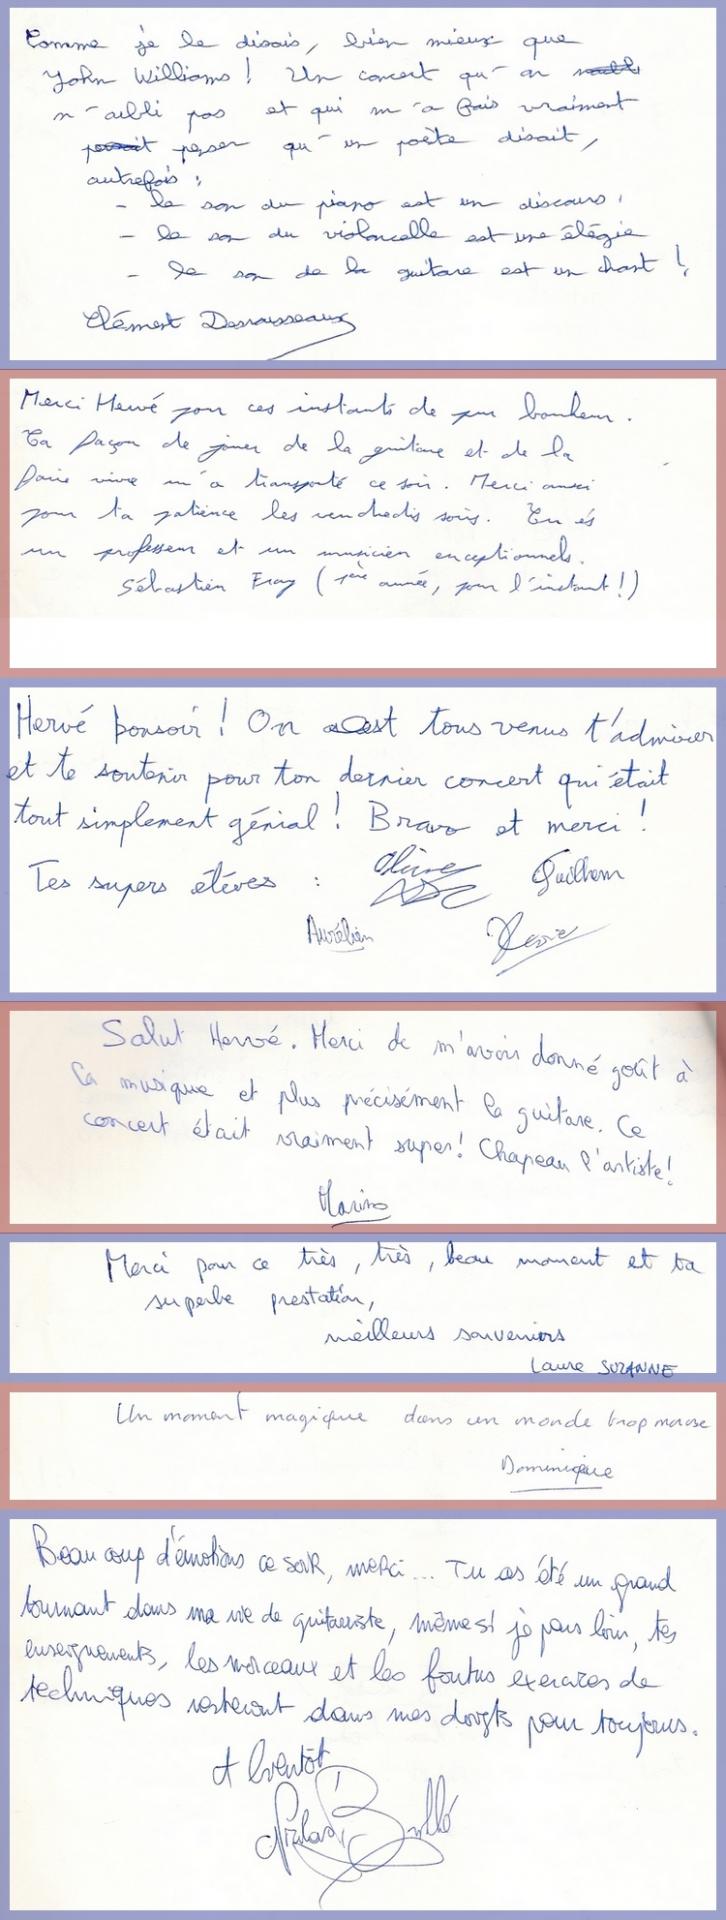 Comme je le disais, bien mieux que
John Williams ! Un concert qu'on
n'oubli pas et qui m'a fais vraiment
penser qu'un poète disait,
autrefois :
- le son du piano est un discours,
- le son du violoncelle est une élégie
- le son de la guitare est un chant !
Clément Desrousseaux
Merci Hervé pour ces instants de pur bonheur.
Ta façon de jouer de la guitare et de la
faire vivre m'a transporté ce soir. Merci aussi
pour ta patience les vendredis soirs. Tu és
un professeur et un musicien exceptionnels.
Sébastien Fray (1ère année, pour l'instant !)
Hervé bonsoir ! On est tous venus t'admirer
et te soutenir pour ton dernier concert qui était
tout simplement génial ! Bravo et merci !
Tes supers élèves :
Guilhem
Aurélien
Salut Hervé. Merci de m'avoir donné goût à
la musique et plus précisément la guitare. Ce
concert était vraiment super! Chapeau l'artiste!
Marino
Merci pour ce très, très, beau moment et ta
superbe prestation,
meilleurs souvenirs
Laure SUZANNE
Un moment magique dans un monde trop morose
Dominique
Beaucoup d'émotions ce soir, merci... Tu as été un grand
tournant dans ma vie de guitariste, même si je pars loin, tes
enseignements, les morceaux et les foutus exercices de
techniques resteront dans mes doigts pour toujours.
A bientôt
Nicolas